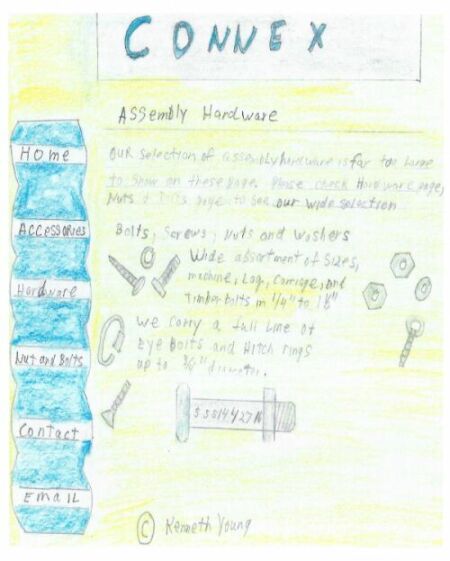 CONNEX
Assembly Hardware
OUR selection of assembly hardware is far too large
to show on these page. Please check Hardware page,
Nuts & page to see our wide selection
Home
Accessories
Hardware
Nut and Bolts
Contact
EMAIL
Bolts, Screws, Nuts and Washers
Wide assortment of sizes,
machine, Lag, Carriage, and
Timber bolts in 1/4" to
We carry a full line of
Eye Bolts and Hitch rings
up to 3/4" diameter.
© Kenneth Young